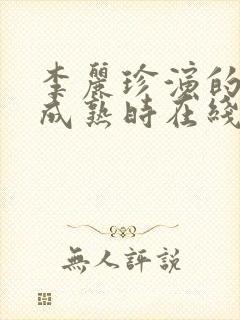 李麗珍演的
成熟時在綫
無人評説